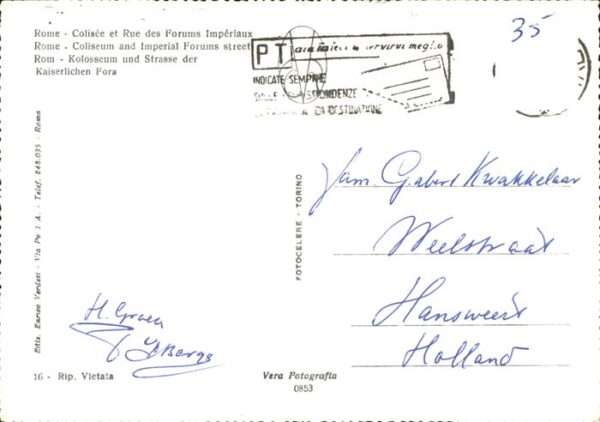 Rome - Colisée et Rue des Forums Impériaux
Rome - Coliseum and Imperial Forums street
Rom - Kolosseum und Strasse der
Kaiserlichen Fora
35
PT aiutateci a servirvi meglio
INDICATE SEMPRE
SULLE CORRISPONDENZE
DI DESTINAZIONE
Fam. Gabert Kwakkelaar
Weelstraat
Hansweert
Holland
H. Groen
Ediz. Enrico Verdesi - Via Po 1 A. - Telef. 848.035 - Roma
FOTOCELERE - TORINO
16 - Rip. Vietata
Vera Fotografia
0853